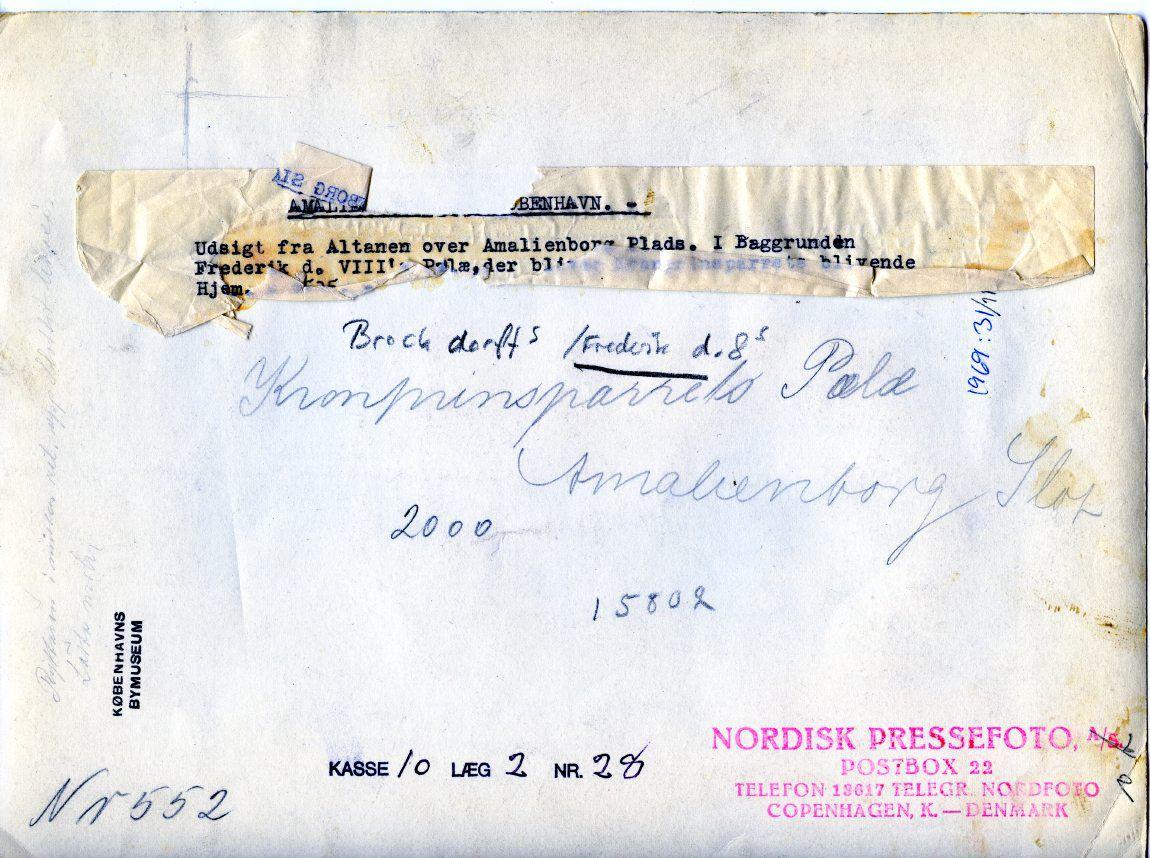 AMALI BENHAVN. -
Udsigt fra Altanen over Amalienborg Plads. I Baggrunden
Frederik d. VIII's Palæ,der bli Kronprinsparrets blivende
Hjem.
Brockdorffs /Frederik d. 8s
Kronprinsparrets Palæ
Amalienborg Slot
2000
15802
1969:31/11
KØBENHAVNS
BYMUSEUM
KASSE 10 LÆG 2 NR. 28
Nr 552
NORDISK PRESSEFOTO, A/S.
POSTBOX 22
TELEFON 13617 TELEGR. NORDFOTO
COPENHAGEN, K. — DENMARK